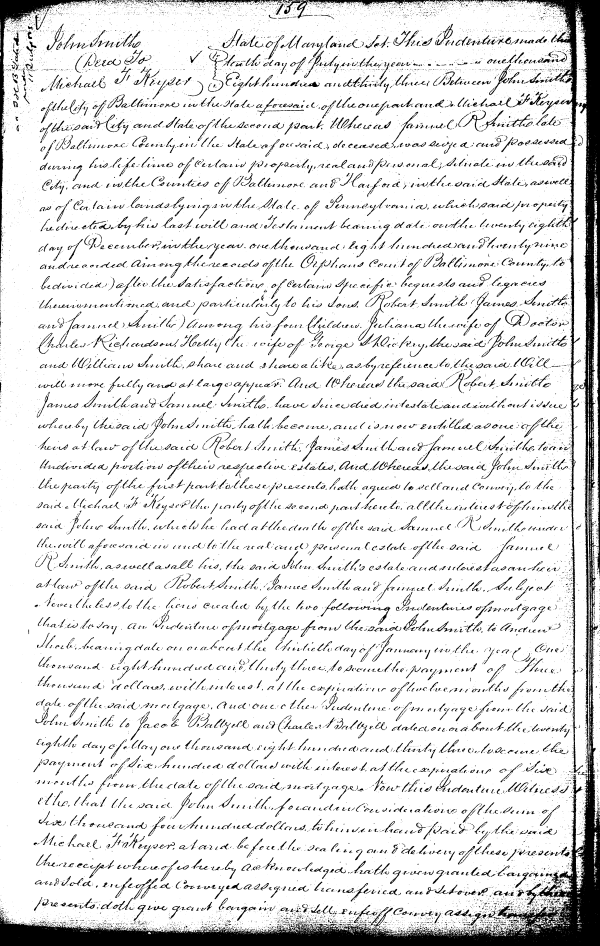 159
John Smith
Deed To
Michael F Keyser
State of Maryland Sct. This Indenture made this
tenth day of July in the year one thousand
Eight hundred and thirty three Between John Smith
of the City of Baltimore in the State aforesaid of the one part and Michael F Keyser
of the said City and State of the second part. Whereas Samuel R Smith late
of Baltimore County in the State aforesaid, deceased, was seized and possessed
during his life time of certain property, real and personal, situate in the said
City, and in the Counties of Baltimore and Harford, in the said State, as well
as of Certain lands lying in the State of Pennsylvania, which said property
he directed by his last will and Testament bearing date on the twenty eighth
day of December in the year one thousand eight hundred and twenty nine
and recorded among the records of the Orphans Court of Baltimore County, to
be divided (after the satisfaction of certain specific bequests and legacies
therein mentioned, and particularly to his sons Robert Smith James Smith
and Samuel Smith) among his four Children, Juliana the wife of Doctor
Charles Richardson, Hetty the wife of George S Dickey, the said John Smith
and William Smith, share and share alike, as by reference to the said Will
will more fully and at large appear. And Whereas the said Robert Smith
James Smith and Samuel Smith, have since died intestate and without issue
whereby the said John Smith, hath become, and is now entitled as one of the
heirs at law of the said Robert Smith, James Smith and Samuel Smith, to an
Undivided portion of their respective estates. And Whereas the said John Smith
the party of the first part to these presents, hath agreed to sell and Convey, to the
said Michael F Keyser the party of the second part hereto, all the interest of him the
said John Smith, which he had at the death of the said Samuel R Smith under
the will aforesaid in and to the real and personal estate of the said Samuel
R Smith, as well as all his, the said John Smith's estate and interest as an heir
at law of the said Robert Smith, James Smith and Samuel Smith. Subject
Nevertheless to the liens created by the two following Indentures of mortgage
that is to say. An Indenture of mortgage from the said John Smith, to Andrew
bearing date on or about the thirtieth day of January in the year One
thousand eight hundred and thirty three to secure the payment of Three
thousand dollars, with interest, at the expiration of twelve months from the
date of the said mortgage. And one other Indenture of mortgage from the said
John Smith to Jacob Baltzell and Charles Baltzell dated on or about the twenty
eighth day of May one thousand eight hundred and thirty three to secure the
payment of Six hundred dollars with interest at the expiration of Six
months from the date of the said mortgage. Now this Indenture Witness
eth, that the said John Smith, for and in Consideration of the sum of
Six thousand four hundred dollars, to him in hand paid by the said
Michael F Keyser, at and before the sealing and delivery of these presents
the receipt whereof is hereby acknowledged, hath given granted bargained
and sold, enfeoffed Conveyed assigned transferred and set over, and by these
presents doth give grant bargain and sell enfeoff Convey assign